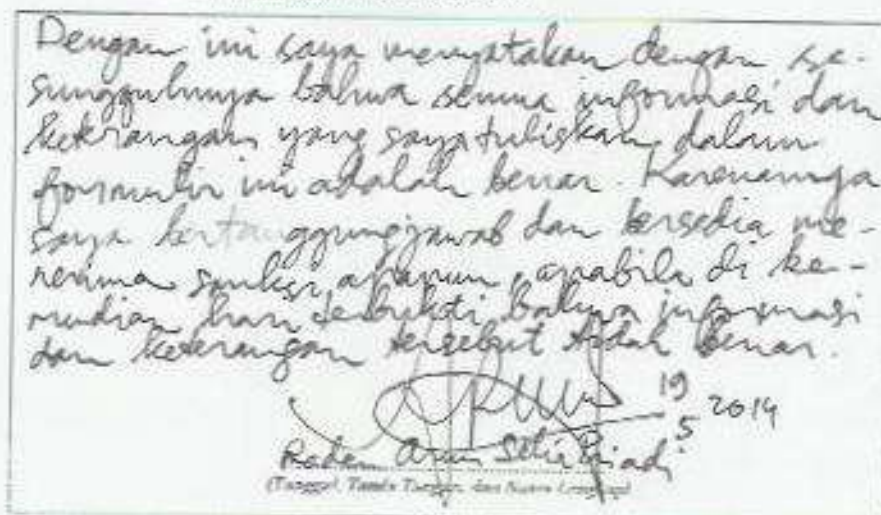 Dengan ini saya menyatakan dengan se-
sungguhnya bahwa semua informasi dan
keterangan yang saya tuliskan dalam
formulir ini adalah benar. Karenanya
saya bertanggungjawab dan bersedia me-
nerima sanksi apapun, apabila di ke-
mudian hari terbukti bahwa informasi
dan keterangan tersebut tidak benar.
19
5 2014
Raden Arum Setia Priadi
(Tanggal, Tanda Tangan, dan Nama Lengkap)